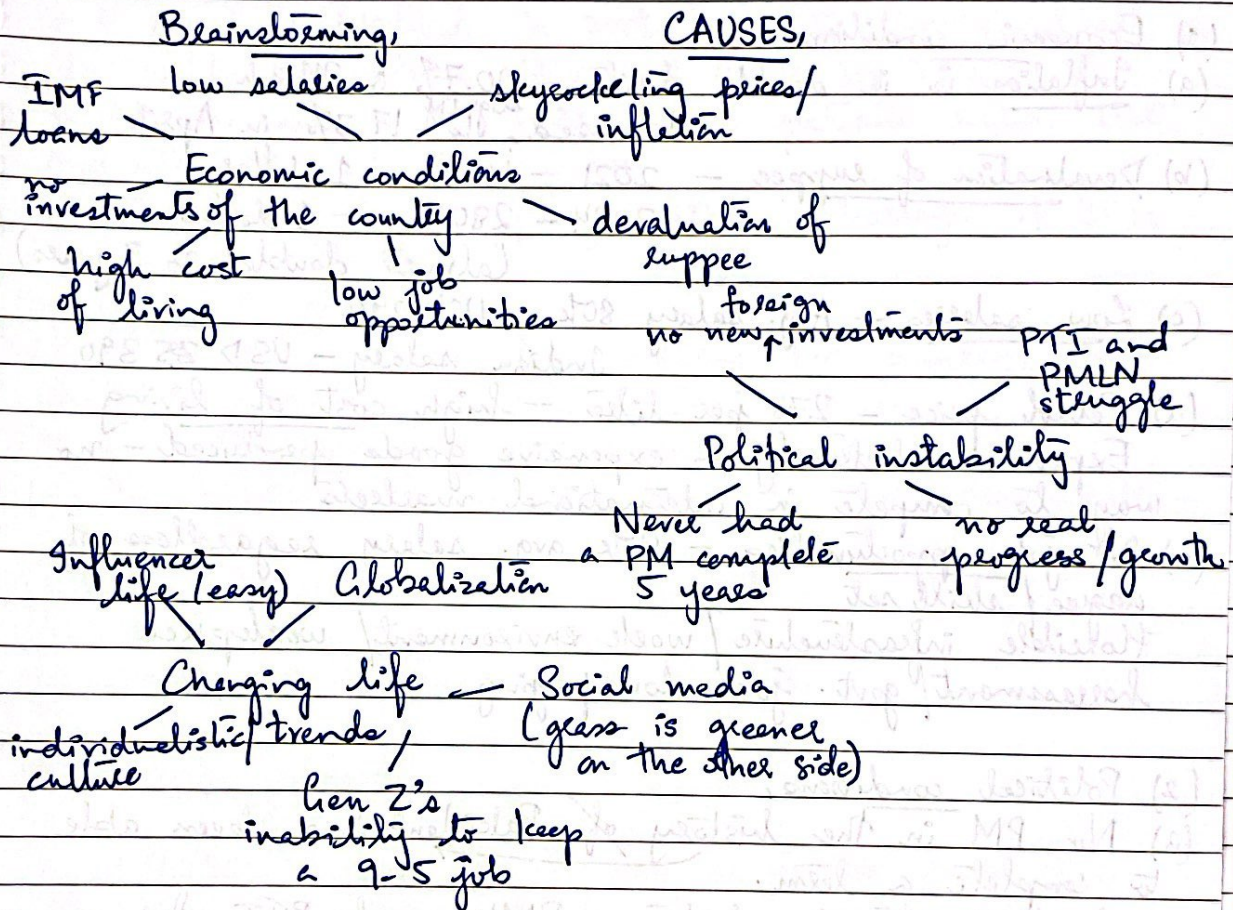 Brainstorming,
CAUSES,
IMF
loans
low salaries
skyrocketing prices/
inflation
Economic conditions
of the country
no
investments
high cost
of living
low job
opportunities
devaluation of
ruppee
foreign
no new investments
PTI and
PMLN
struggle
Political instability
Never had
a PM complete
5 years
no real
progress/growth
Influencer
life (easy)
Globalization
Changing life
trends
Social media
(grass is greener
on the other side)
individualistic
culture
Gen Z's
inability to keep
a 9-5 job